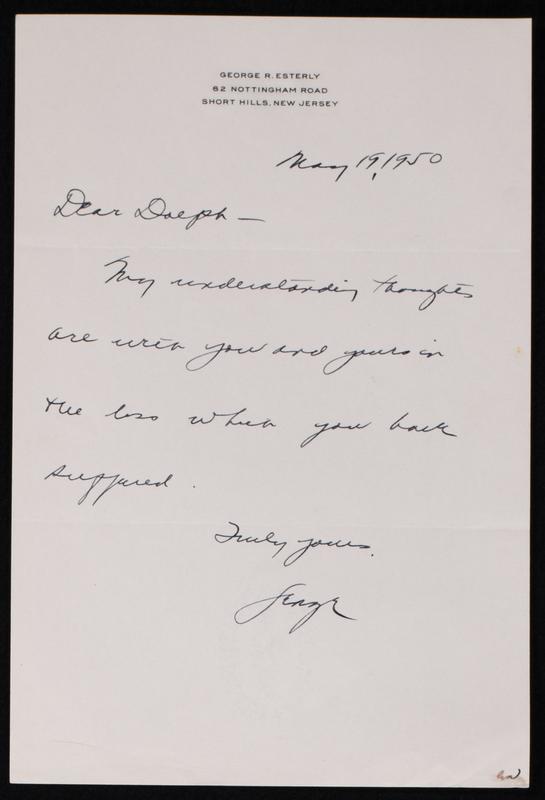 GEORGE R. ESTERLY
62 NOTTINGHAM ROAD
SHORT HILLS, NEW JERSEY
May 19, 1950
Dear Dolph —
My understanding thoughts
are with you and yours in
the loss which you have
suffered.
Truly yours,
George